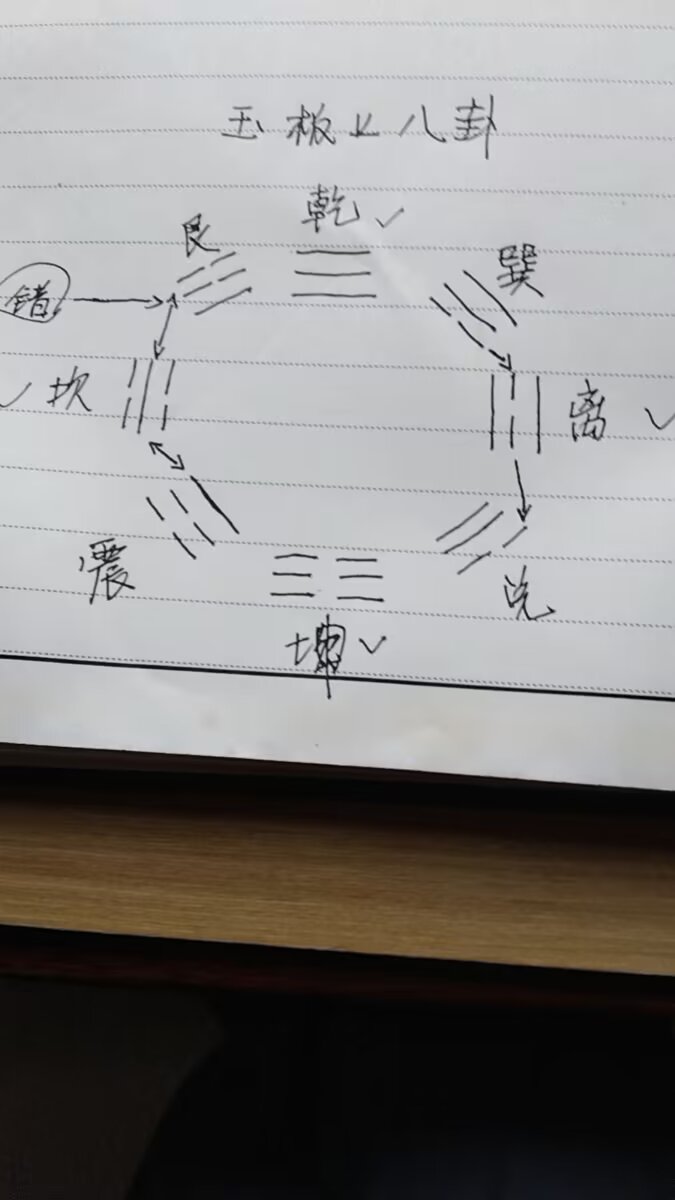 玉板上八卦
乾
艮
巽
错
坎
离
震
兑
坤